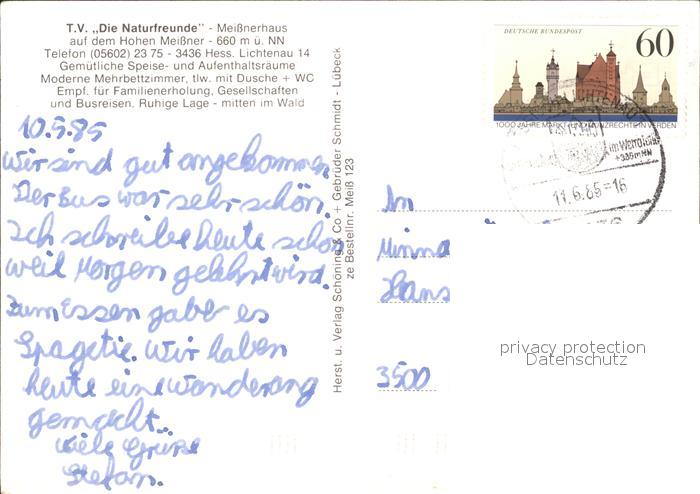 T.V. „Die Naturfreunde" - Meißnerhaus
auf dem Hohen Meißner - 660 m ü. NN
Telefon (05602) 23 75 - 3436 Hess. Lichtenau 14
Gemütliche Speise- und Aufenthaltsräume
Moderne Mehrbettzimmer, tlw. mit Dusche + WC
Empf. für Familienerholung, Gesellschaften
und Busreisen. Ruhige Lage - mitten im Wald
10.5.85
Wir sind gut angekommen.
Der Bus war sehr schön.
Ich schreibe heute schon
weil Morgen gelehrt wird.
Zum Essen gab es
Spagetie. Wir haben
heute eine Wanderang
gemacht.
viele Grüße
Stefan.
Herst. u. Verlag Schöning & Co + Gebrüder Schmidt - Lübeck
ze Bestellnr. Meiß 123
DEUTSCHE BUNDESPOST
60
1000 JAHRE MARKT- UND MÜNZRECHT IN VERDEN
+385mNN
11.6.85-16
An
Minna
Hans
3500
privacy protection
Datenschutz